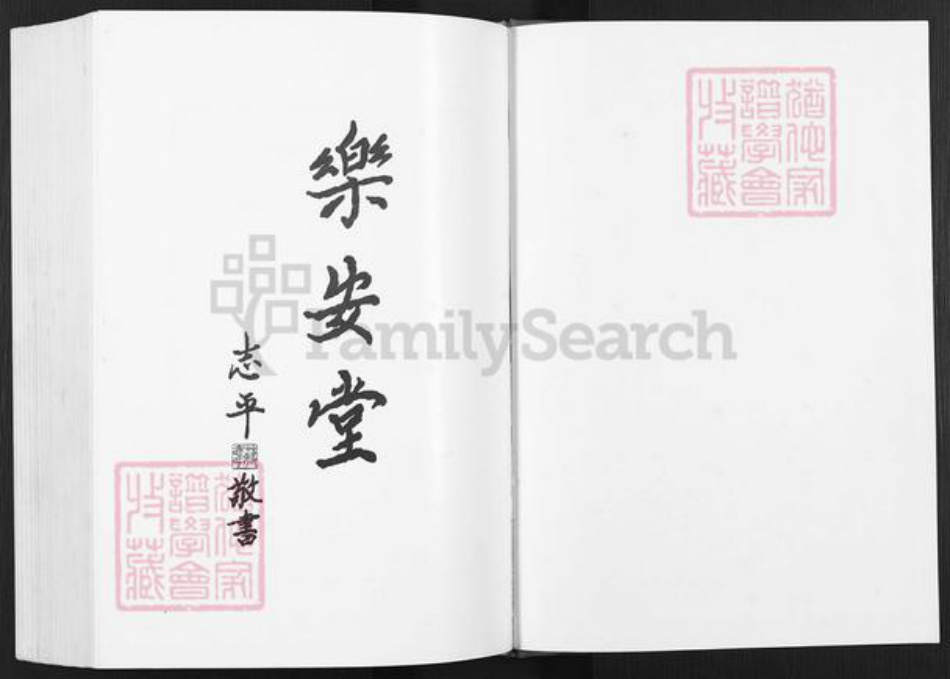 猶他家
譜學會
收藏
樂安堂
志平 敬書
猶他家
譜學會
收藏
FamilySearch